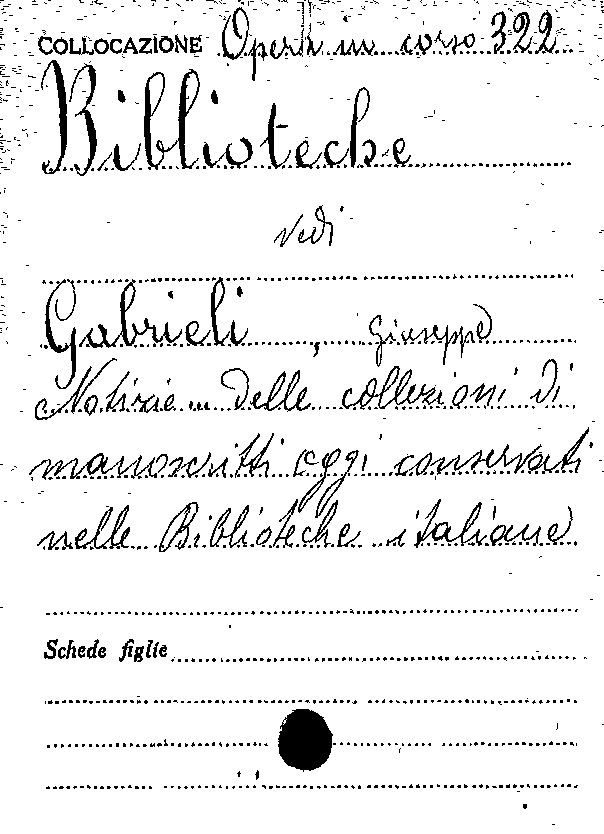 COLLOCAZIONE Opera in corso 322
Biblioteche
vedi
Gabrieli, Giuseppe
Notizie... delle collezioni di
manoscritti oggi conservati
nelle Biblioteche italiane
Schede figlie